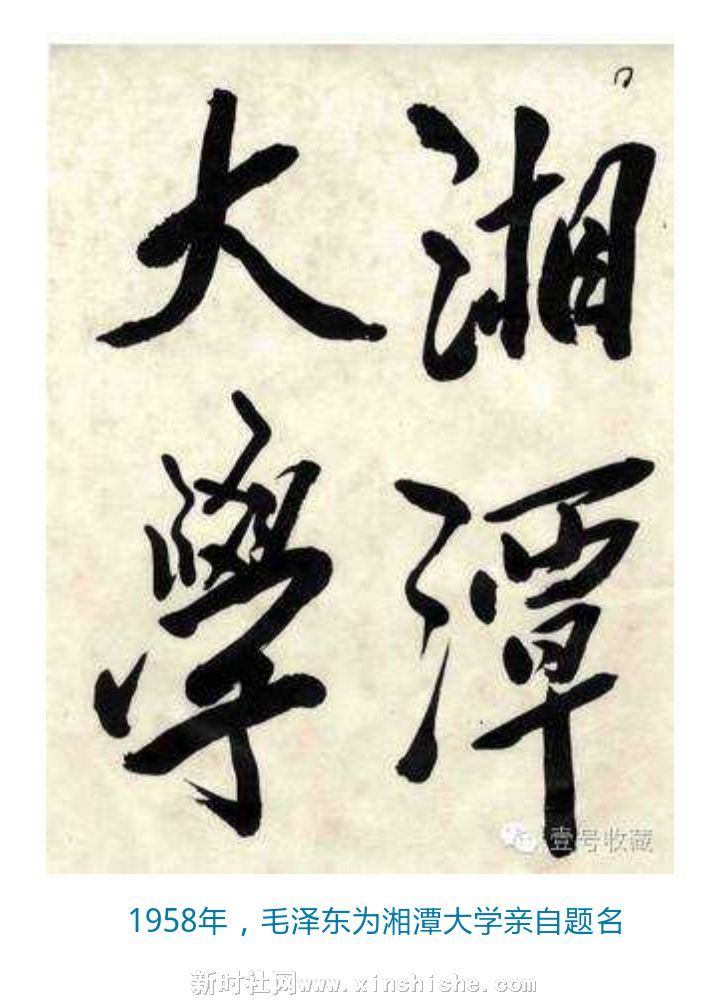 湘潭
大學
壹号收藏
1958年，毛泽东为湘潭大学亲自题名
新时社网www.xinshishe.com